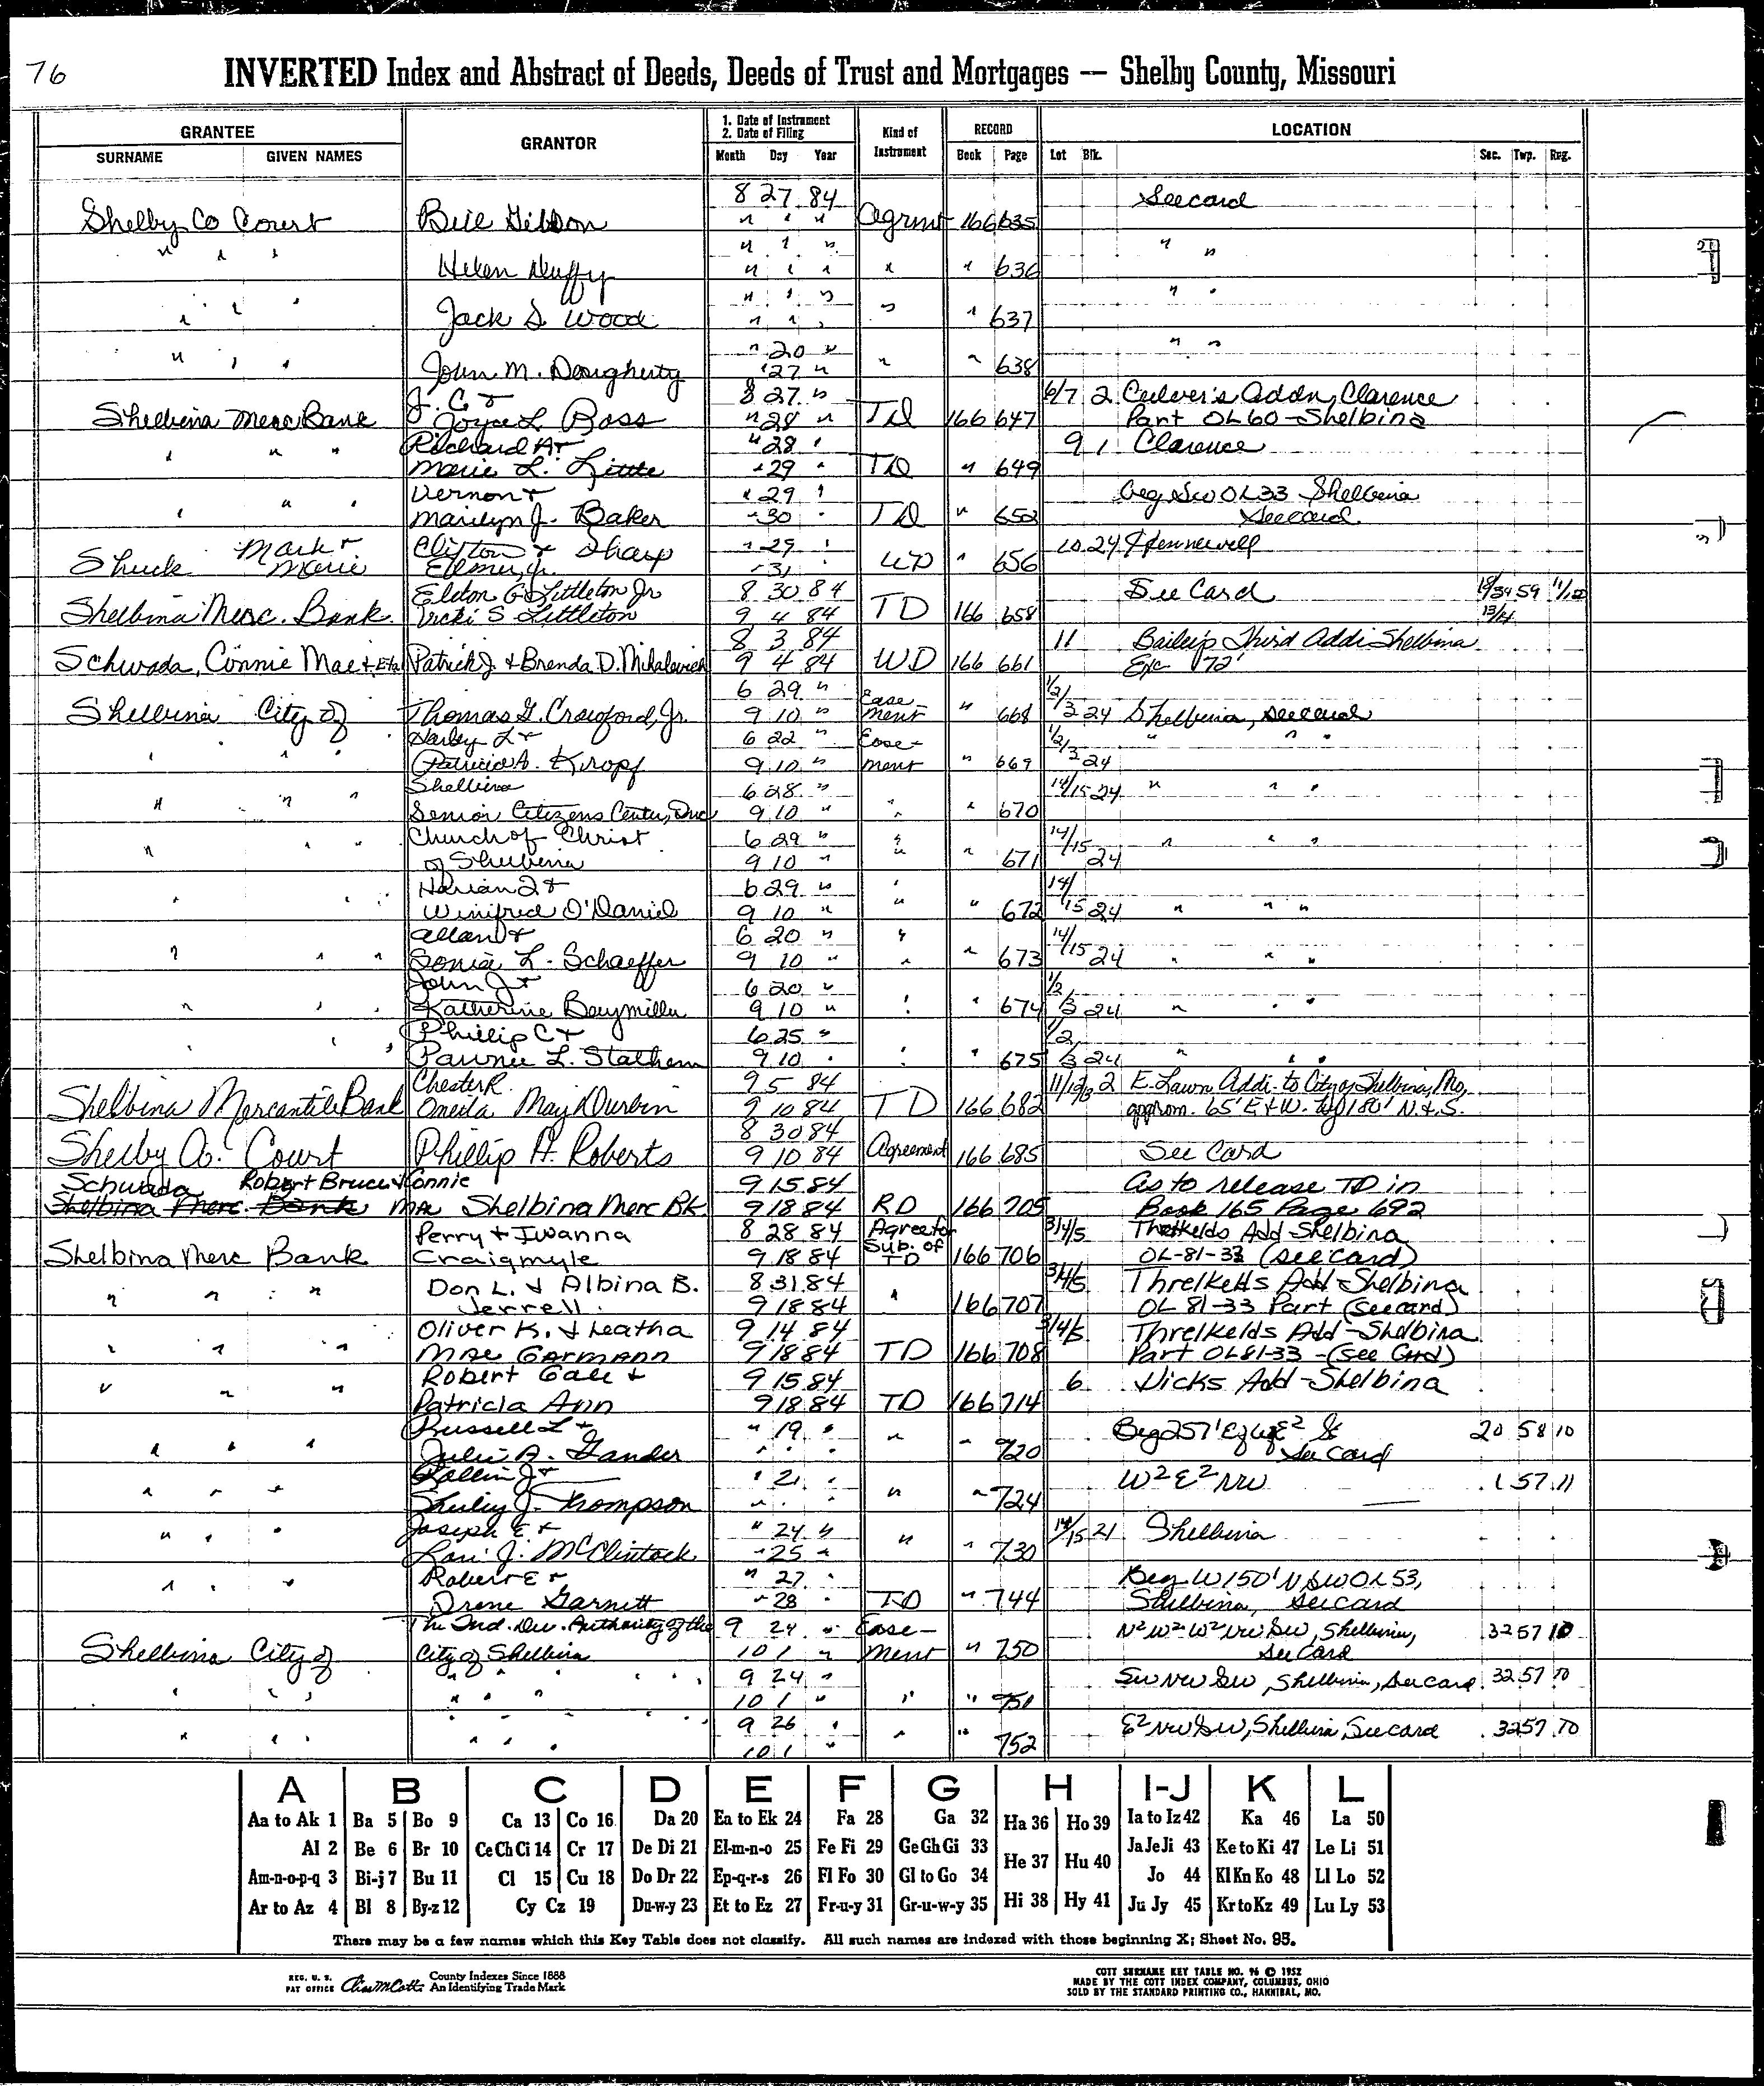 76
INVERTED Index and Abstract of Deeds, Deeds of Trust and Mortgages — Shelby County, Missouri
GRANTEE GRANTOR 1. Date of Instrument 2. Date of Filing Kind of Instrument RECORD LOCATION
SURNAME GIVEN NAMES Month Day Year Book Page Lot Blk. Sec. Twp. Rug.
8 27 84 See card
Shelby Co Court Bill Gibson " " " Agrmt 166 635
" " " " " "
" " " Helen Duffy " " " " " 636
" " " " "
" " " Jack D. Wood " " " " " 637
" 20 " " "
" " " John M. Dougherty " 27 " " " 638
J. C. & 8 27 " 6/7 2 Culver's Addn, Clarence
Shelbina Merc Bank Joyce L. Bass " 28 " TD 166 647 Part OL 60 - Shelbina
Richard A + " 28 " 9 1 Clarence
" " " Marie L. Little " 29 " TD " 649
Vernon + " 29 " Beg SW OL 33 Shelbina
" " " Marilyn J. Baker " 30 " TD " 652 See card
Mark + Clifton + Sharp " 29 " 10 24 Hunnewell
Shuck Marie Elmer, Jr. " 31 " WD " 656
Elden G Littleton Jr 8 30 84 See Card 59
Shelbina Merc. Bank Vicki S Littleton 9 4 84 TD 166 658 13/14
8 3 84 11 Third Addi Shelbina
Schwada, Connie Mae + Patrick J. + Brenda D. Mihalevich 9 4 84 WD 166 661 Exc 72'
6 29 " Ease- 1/2/
Shelbina City of Thomas G. Crawford, Jr. 9 10 " ment " 668 3 24 Shelbina, see card
Harley L + 6 22 " Ease- 1/2/ " " "
" " " Patricia A. Kropf 9 10 " ment " 669 3 24
Shelbina 6 28 " 14/15 24 " " "
" " " Senior Citizens Center, Inc 9 10 " " " 670
Church of Christ 6 29 " " 14/15 " " "
" " " of Shelbina 9 10 " " " 671 24
6 29 " " 14/
" " " Winifred O'Daniel 9 10 " " " 672 15 24 " " "
Allan + 6 20 " " 14/
" " " Sonia L. Schaeffer 9 10 " " " 673 15 24 " " "
John J + 6 20 " 1/2
" " " Katherine Baymiller 9 10 " " " 674 /3 24 " " "
Phillip C + 6 25 " 1/2
" " " L. Stathem 9 10 " " " 675 /3 24 " " "
Chester R. 9 5 84 11/12/13 2 E. Lawn Addi. to City of Shelbina, Mo,
Shelbina Mercantile Bank Oneida May Durbin 9 10 84 TD 166 682 approm. 65' E + W. by 180' N. + S.
8 30 84
Shelby Co. Court Phillip A. Roberts 9 10 84 Agreement 166 685 See Card
Schwada Robert Bruce + Connie 9 15 84 As to release TD in
Shelbina Merc. Bank Mae Shelbina Merc Bk. 9 18 84 RD 166 705 Book 165 Page 692
Perry + Iwanna 8 28 84 Agree for 3/4/5 Add-Shelbina
Shelbina Merc Bank Craigmyle 9 18 84 Sub. of TD 166 706 OL-81-33 (see card)
Don L. + Albina B. 8 31 84 3/4/5 Threlkelds Add-Shelbina
" " " " Jerrell 9 18 84 " 166 707 OL 81-33 Part (see card)
Oliver K. + Leatha 9 14 84 3/4/5 Threlkelds Add-Shelbina
" " " Mae Garmann 9 18 84 TD 166 708 Part OL81-33-(see Card)
Robert Gale + 9 15 84 6 Vicks Add-Shelbina
" " " Patricia Ann 9 18 84 TD 166 714
Russell L + " 19 " Beg 257' 20 58 10
" " " Julie A. Gander " " " " " 720 See Card
Rollin J + " 21 " W² E² NW 1 57 11
" " " Shirley J. Thompson " " " " " 724
Joseph E + " 24 " 14/15 21 Shelbina
" " " Lori J. McClintock " 25 " " " 730
Robert E + " 27 " Beg W 150' N SW OL 53,
" " " Irene Garnett " 28 " TD " 744 Shelbina, See card
The Ind. Dev. Authority of the 9 24 " Ease- N² W² W² NW SW, Shelbina, 32 57 10
Shelbina City of City of Shelbina 10 1 " ment " 750 See Card
" " " " 9 24 " SW NW SW, Shelbina, See card 32 57 10
" " " " " " 10 1 " " " 751
" " " " 9 26 " E² NW SW, Shelbina, See card 32 57 10
" " " " " " 10 1 " " " 752
A B C D E F G H I-J K L
Aa to Ak 1 Ba 5 Bo 9 Ca 13 Co 16 Da 20 Ea to Ek 24 Fa 28 Ga 32 Ha 36 Ho 39 Ia to Iz 42 Ka 46 La 50
Al 2 Be 6 Br 10 Ce Ch Ci 14 Cr 17 De Di 21 El-m-n-o 25 Fe Fi 29 Ge Gh Gi 33 He 37 Hu 40 Ja Je Ji 43 Ke to Ki 47 Le Li 51
Am-n-o-p-q 3 Bi-j 7 Bu 11 Cl 15 Cu 18 Do Dr 22 Ep-q-r-s 26 Fl Fo 30 Gl to Go 34 Jo 44 Kl Kn Ko 48 Ll Lo 52
Ar to Az 4 Bl 8 By-z 12 Cy Cz 19 Du-w-y 23 Et to Ez 27 Fr-u-y 31 Gr-u-w-y 35 Hi 38 Hy 41 Ju Jy 45 Kr to Kz 49 Lu Ly 53
There may be a few names which this Key Table does not classify. All such names are indexed with those beginning X; Sheet No. 95.
REG. U. S. PAT OFFICE County Indexes Since 1888 An Identifying Trade Mark
COTT SURNAME KEY TABLE NO. 96 © 1952
MADE BY THE COTT INDEX COMPANY, COLUMBUS, OHIO
SOLD BY THE STANDARD PRINTING CO., HANNIBAL, MO.